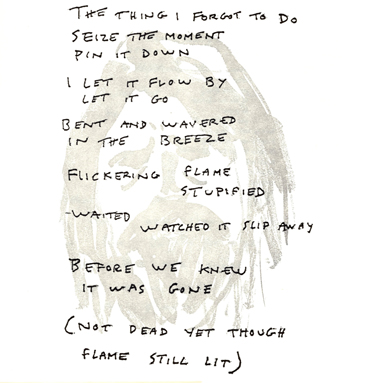 THE THING I FORGOT TO DO
SEIZE THE MOMENT
PIN IT DOWN
I LET IT FLOW BY
LET IT GO
BENT AND WAVERED
IN THE BREEZE
FLICKERING FLAME
STUPIFIED
-WAITED
WATCHED IT SLIP AWAY
BEFORE WE KNEW
IT WAS GONE
(NOT DEAD YET THOUGH
FLAME STILL LIT)